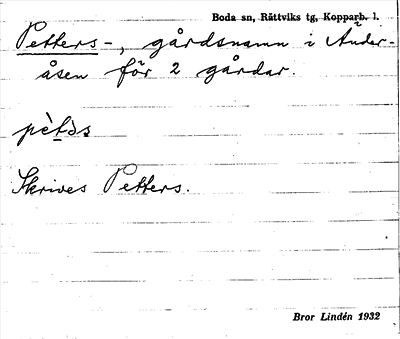 Boda sn, Rättviks tg, Kopparb. l.
Petters-, gårdsnamn i Ander-
åsen för 2 gårdar.
pὲtə̀s
Skrives Petters.
Bror Lindén 1932